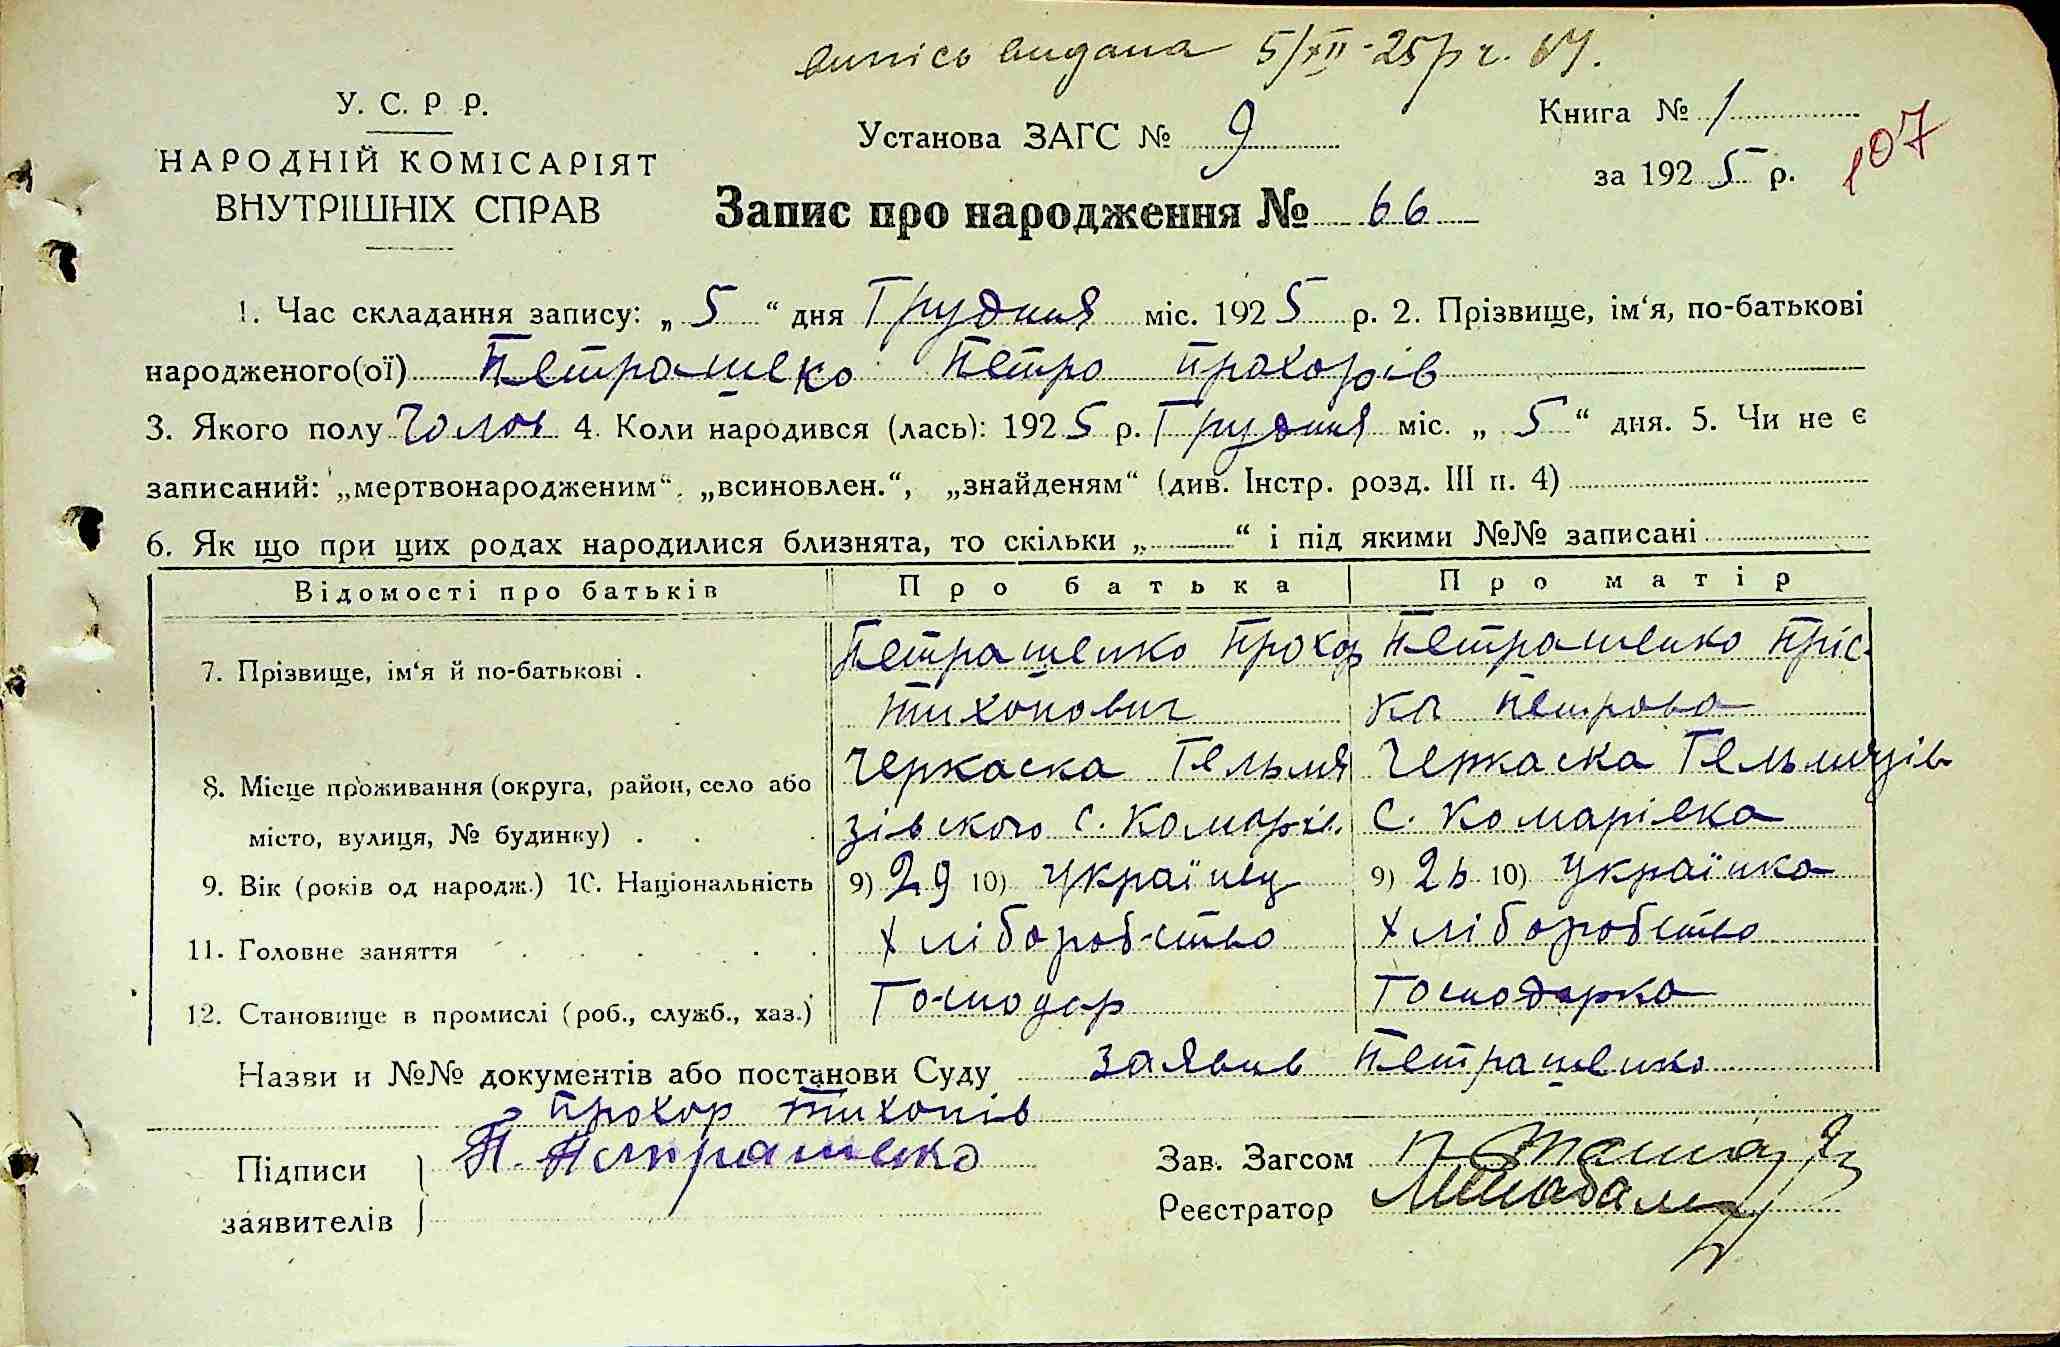 випісь видана 5/XII-25 р ч. 67.
У. С. Р. Р.
НАРОДНІЙ КОМІСАРІЯТ
ВНУТРІШНІХ СПРАВ
Установа ЗАГС № 9
Книга № 1
за 1925 р.
107
Запис про народження № 66
1. Час складання запису: „5“ дня Грудня міс. 1925 р. 2. Прізвище, ім‘я, по-батькові
народженого(ої) Петрашеко Петро Прохорів
3. Якого полу Чолов 4. Коли народився (лась): 1925 р. Грудня міс. „5“ дня. 5. Чи не є
записаний: „мертвонародженим“, „всиновлен.“, „знайденям“ (див. Інстр. розд. III п. 4)
6. Як що при цих родах народилися близнята, то скільки „—“ і під якими №№ записані
Відомості про батьків Про батька Про матір
7. Прізвище, ім‘я й по-батькові . Петрашенко Прохор Тихонович Петрашенко Пріс-
ка Петрова
8. Місце проживання (округа, район, село або
місто, вулиця, № будинку) . . . Черкаска Гельмя
зівского с. Комарів. Черкаска Гельмязів
с. Комарівка
9. Вік (років од народж.) 10. Національність 9) 29 10) Українец 9) 26 10) Українка
11. Головне заняття Хлібороб-ство Хліборобство
12. Становище в промислі (роб., служб., хаз.) Господар Господарка
Назви и №№ документів або постанови Суду заявив Петрашенко
Прохор Тихонів
Підписи
заявителів П. Петрашенко
Зав. Загсом
Реєстратор